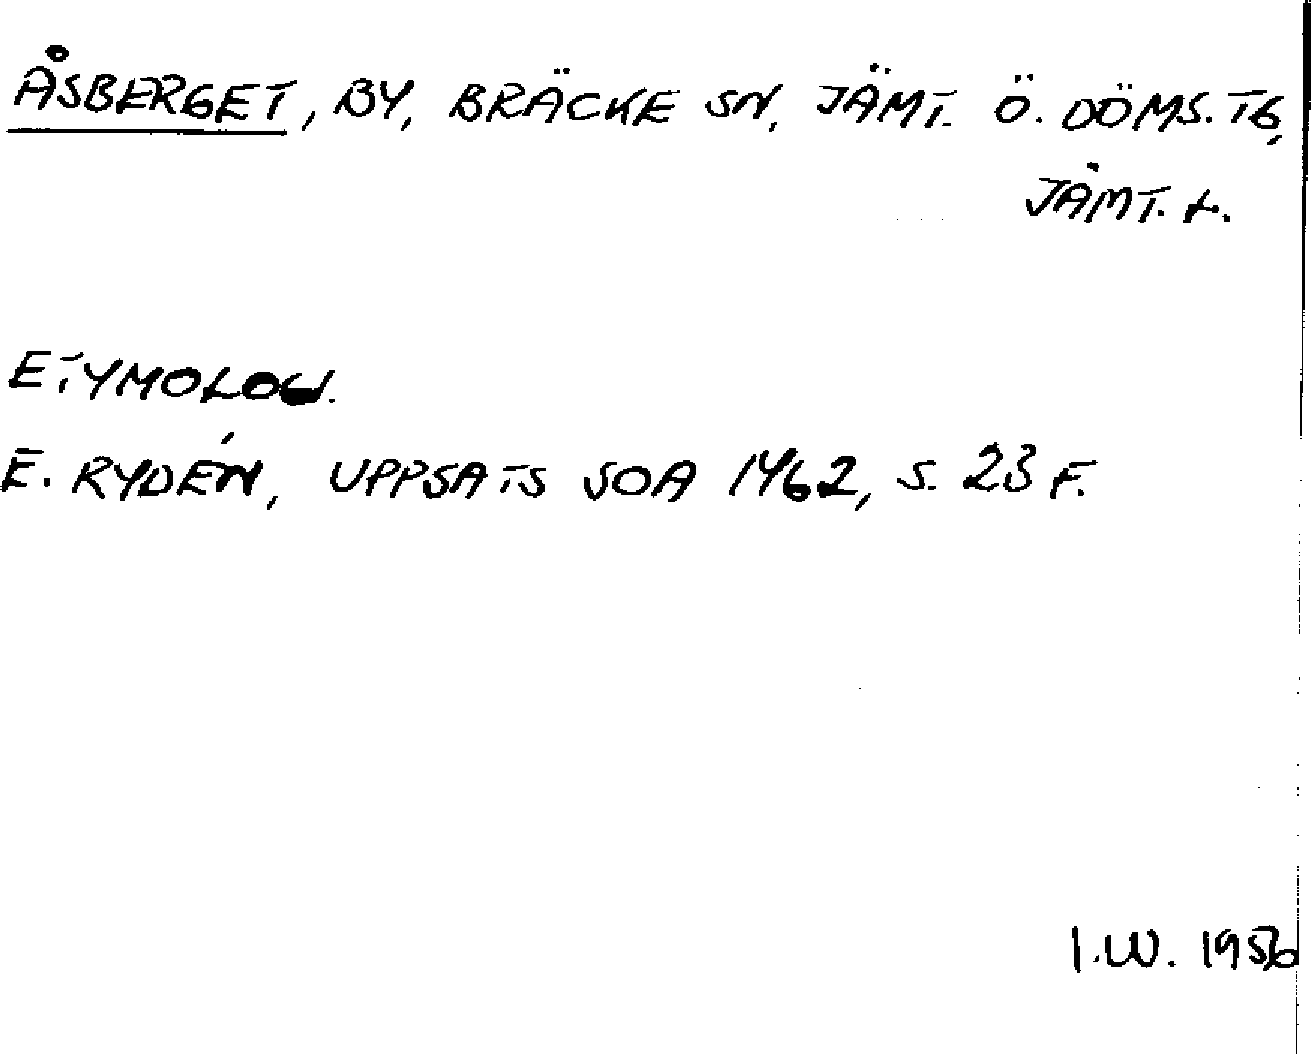 ÅSBERGET, BY, BRÄCKE SN, JÄMT. Ö. DOMS. TG,
JÄMT. L.
ETYMOLOGI.
E. RYDÉN, UPPSATS SOA 1462, S. 23 F.
I.W. 1956